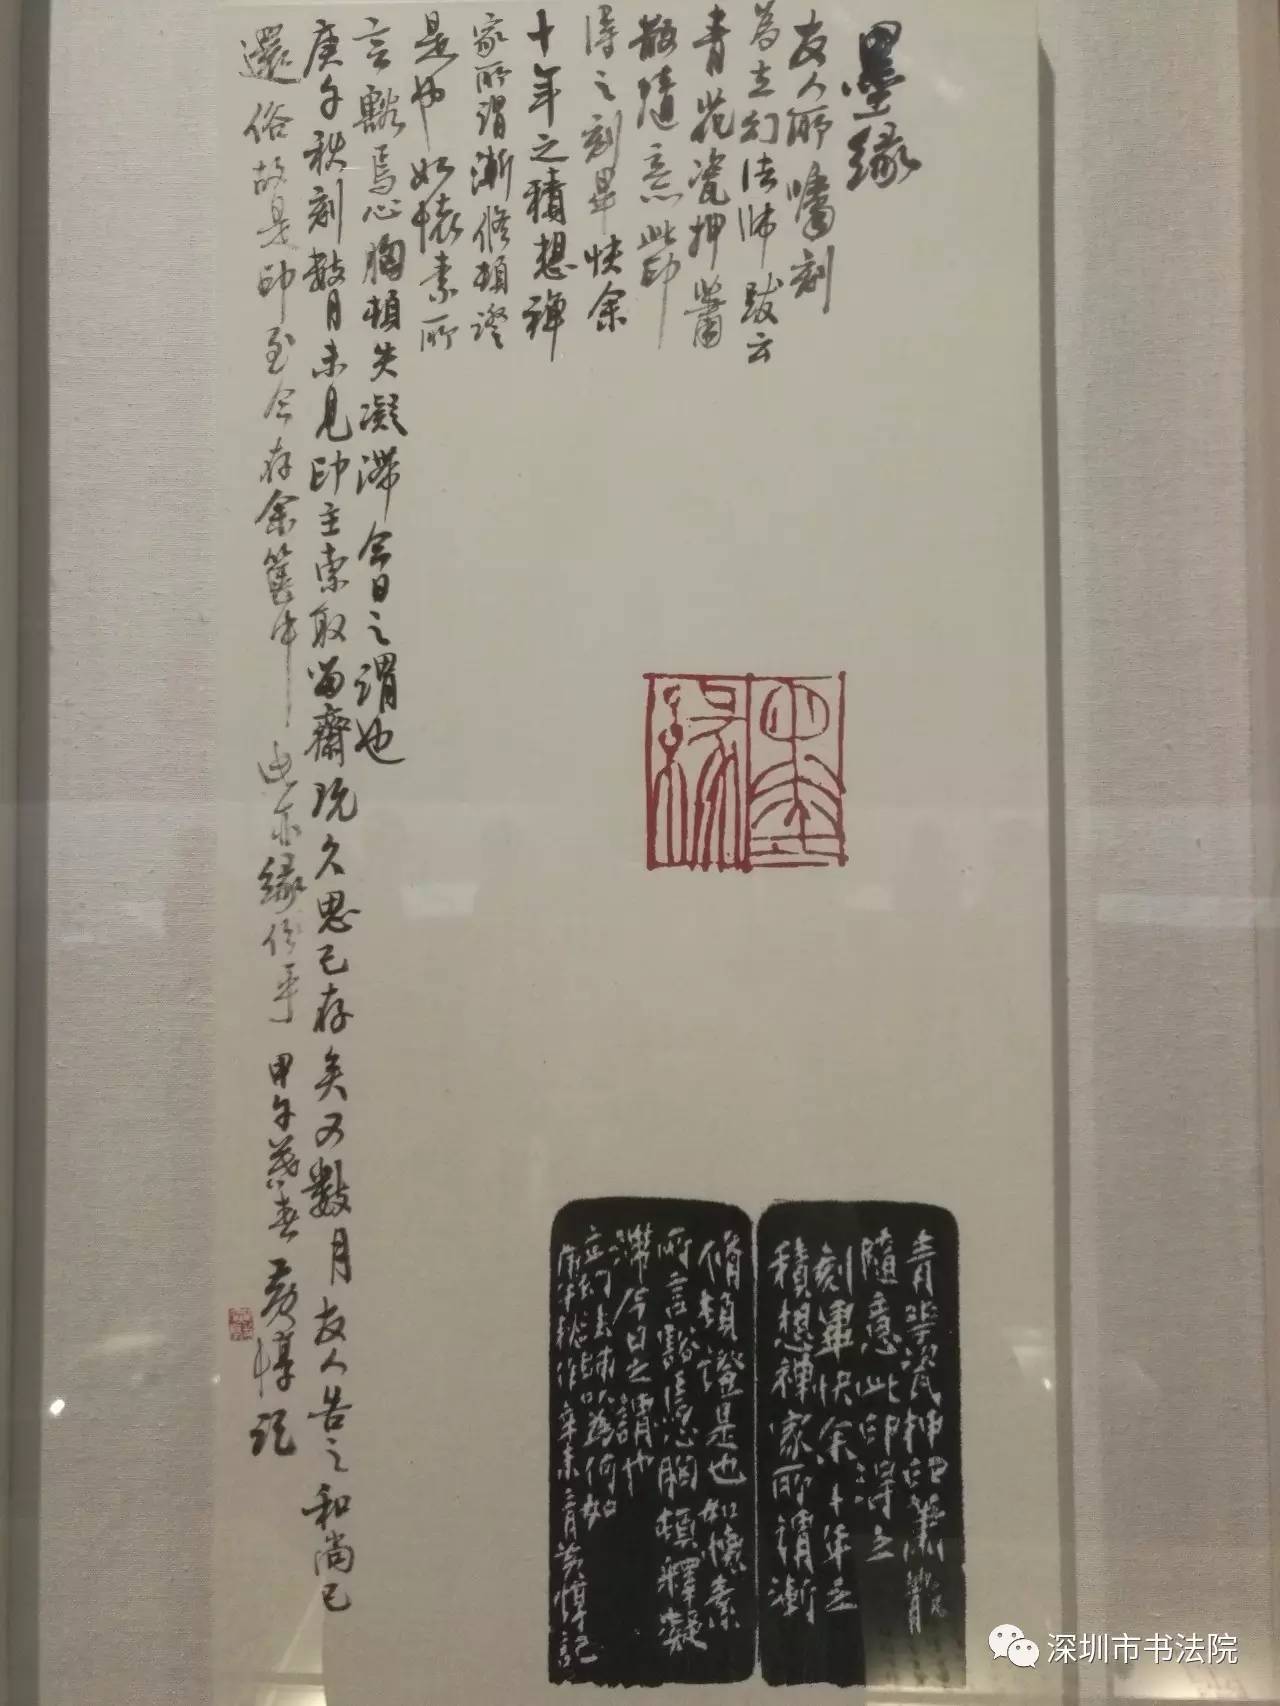 墨缘
友人所嘱刻
为立幻法师跋云
青花瓷押萧
散随意此印
得之刻毕快余
十年之积想禅
家所谓渐修顿證
是也如怀素所
言豁焉心胸顿失凝滞今日之谓也
庚午秋刻数月未见印主索取留斋既久思已存矣又数月友人告之和尚已
還俗故是印至今存余箧中此亦缘份乎
甲午暮春黄惇记
墨缘
青花瓷押印萧散
隨意此印得之
刻畢快余十年之
積想禅家所謂漸
脩頓證是也如懷素
所言豁焉心胸頓釋凝
滯今日之謂也
立幻法師以為何如
庚午秋作辛未二月黄惇記
深圳市书法院